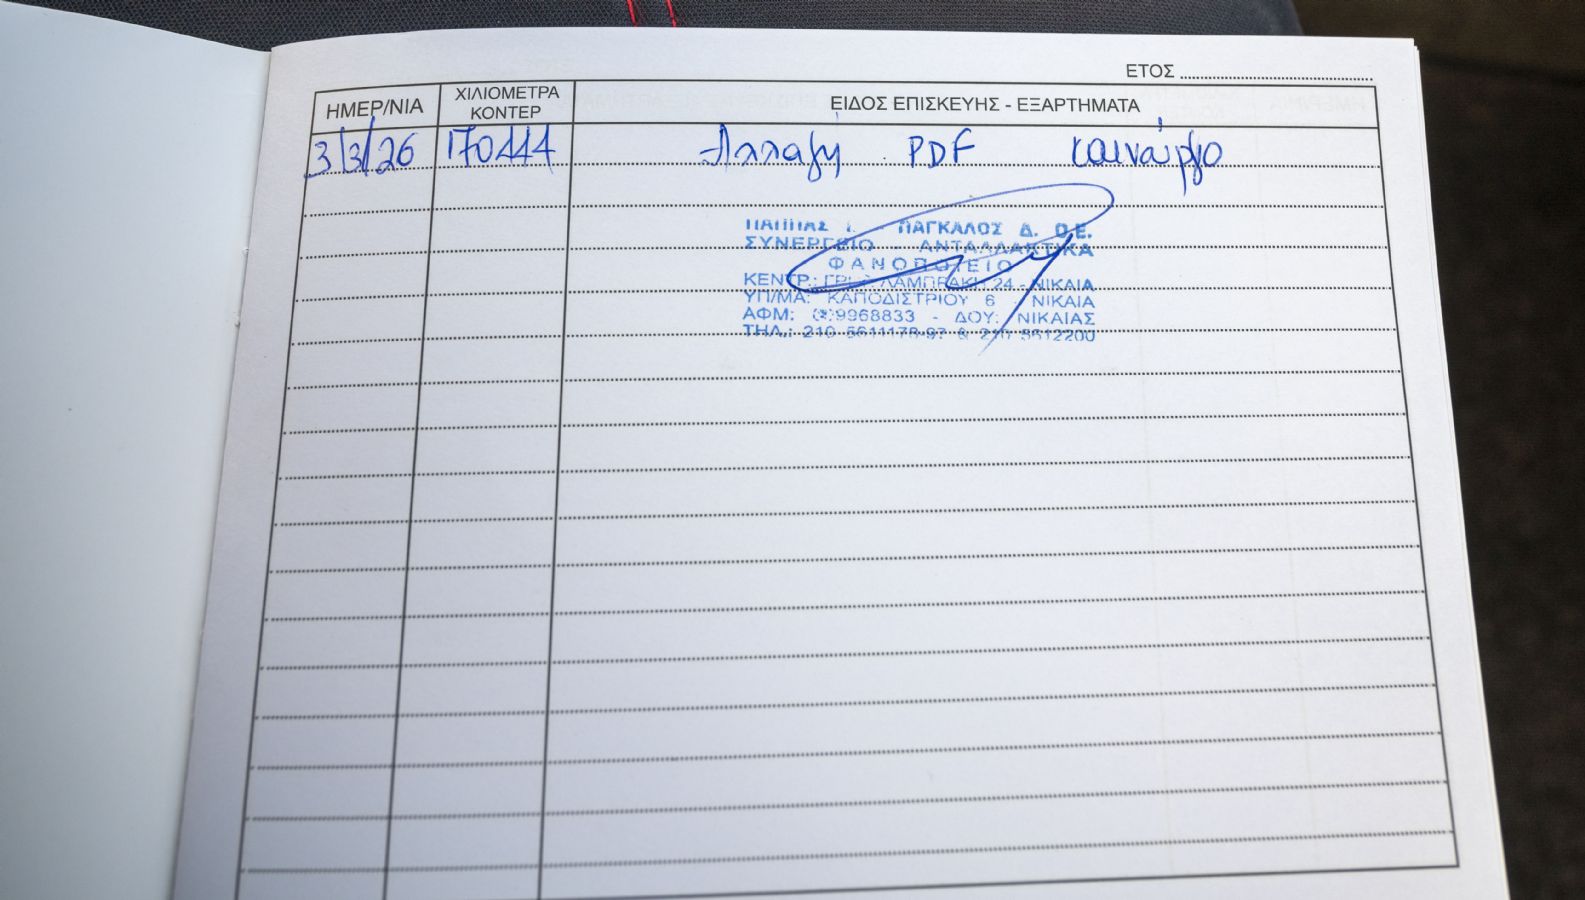 ΕΤΟΣ
ΗΜΕΡ/ΝΙΑ ΧΙΛΙΟΜΕΤΡΑ ΚΟΝΤΕΡ ΕΙΔΟΣ ΕΠΙΣΚΕΥΗΣ - ΕΞΑΡΤΗΜΑΤΑ
3/3/26 170444 Αλλαγή PDF καινούργο
ΠΑΠΠΑΣ - ΠΑΓΚΑΛΟΣ Δ. Ο.Ε.
ΣΥΝΕΡΓΕΙΟ - ΑΝΤΑΛΛΑΚΤΙΚΑ
ΦΑΝΟΠΟΙΕΙΟ
ΚΕΝΤΡ.: ΛΑΜΠΡΑΚΗ 24 - ΝΙΚΑΙΑ
ΥΠ/ΜΑ: ΚΑΠΟΔΙΣΤΡΙΟΥ 6 - ΝΙΚΑΙΑ
ΑΦΜ: - ΔΟΥ: ΝΙΚΑΙΑΣ
ΤΗΛ.: 210 5611178-97 & 210 5612200